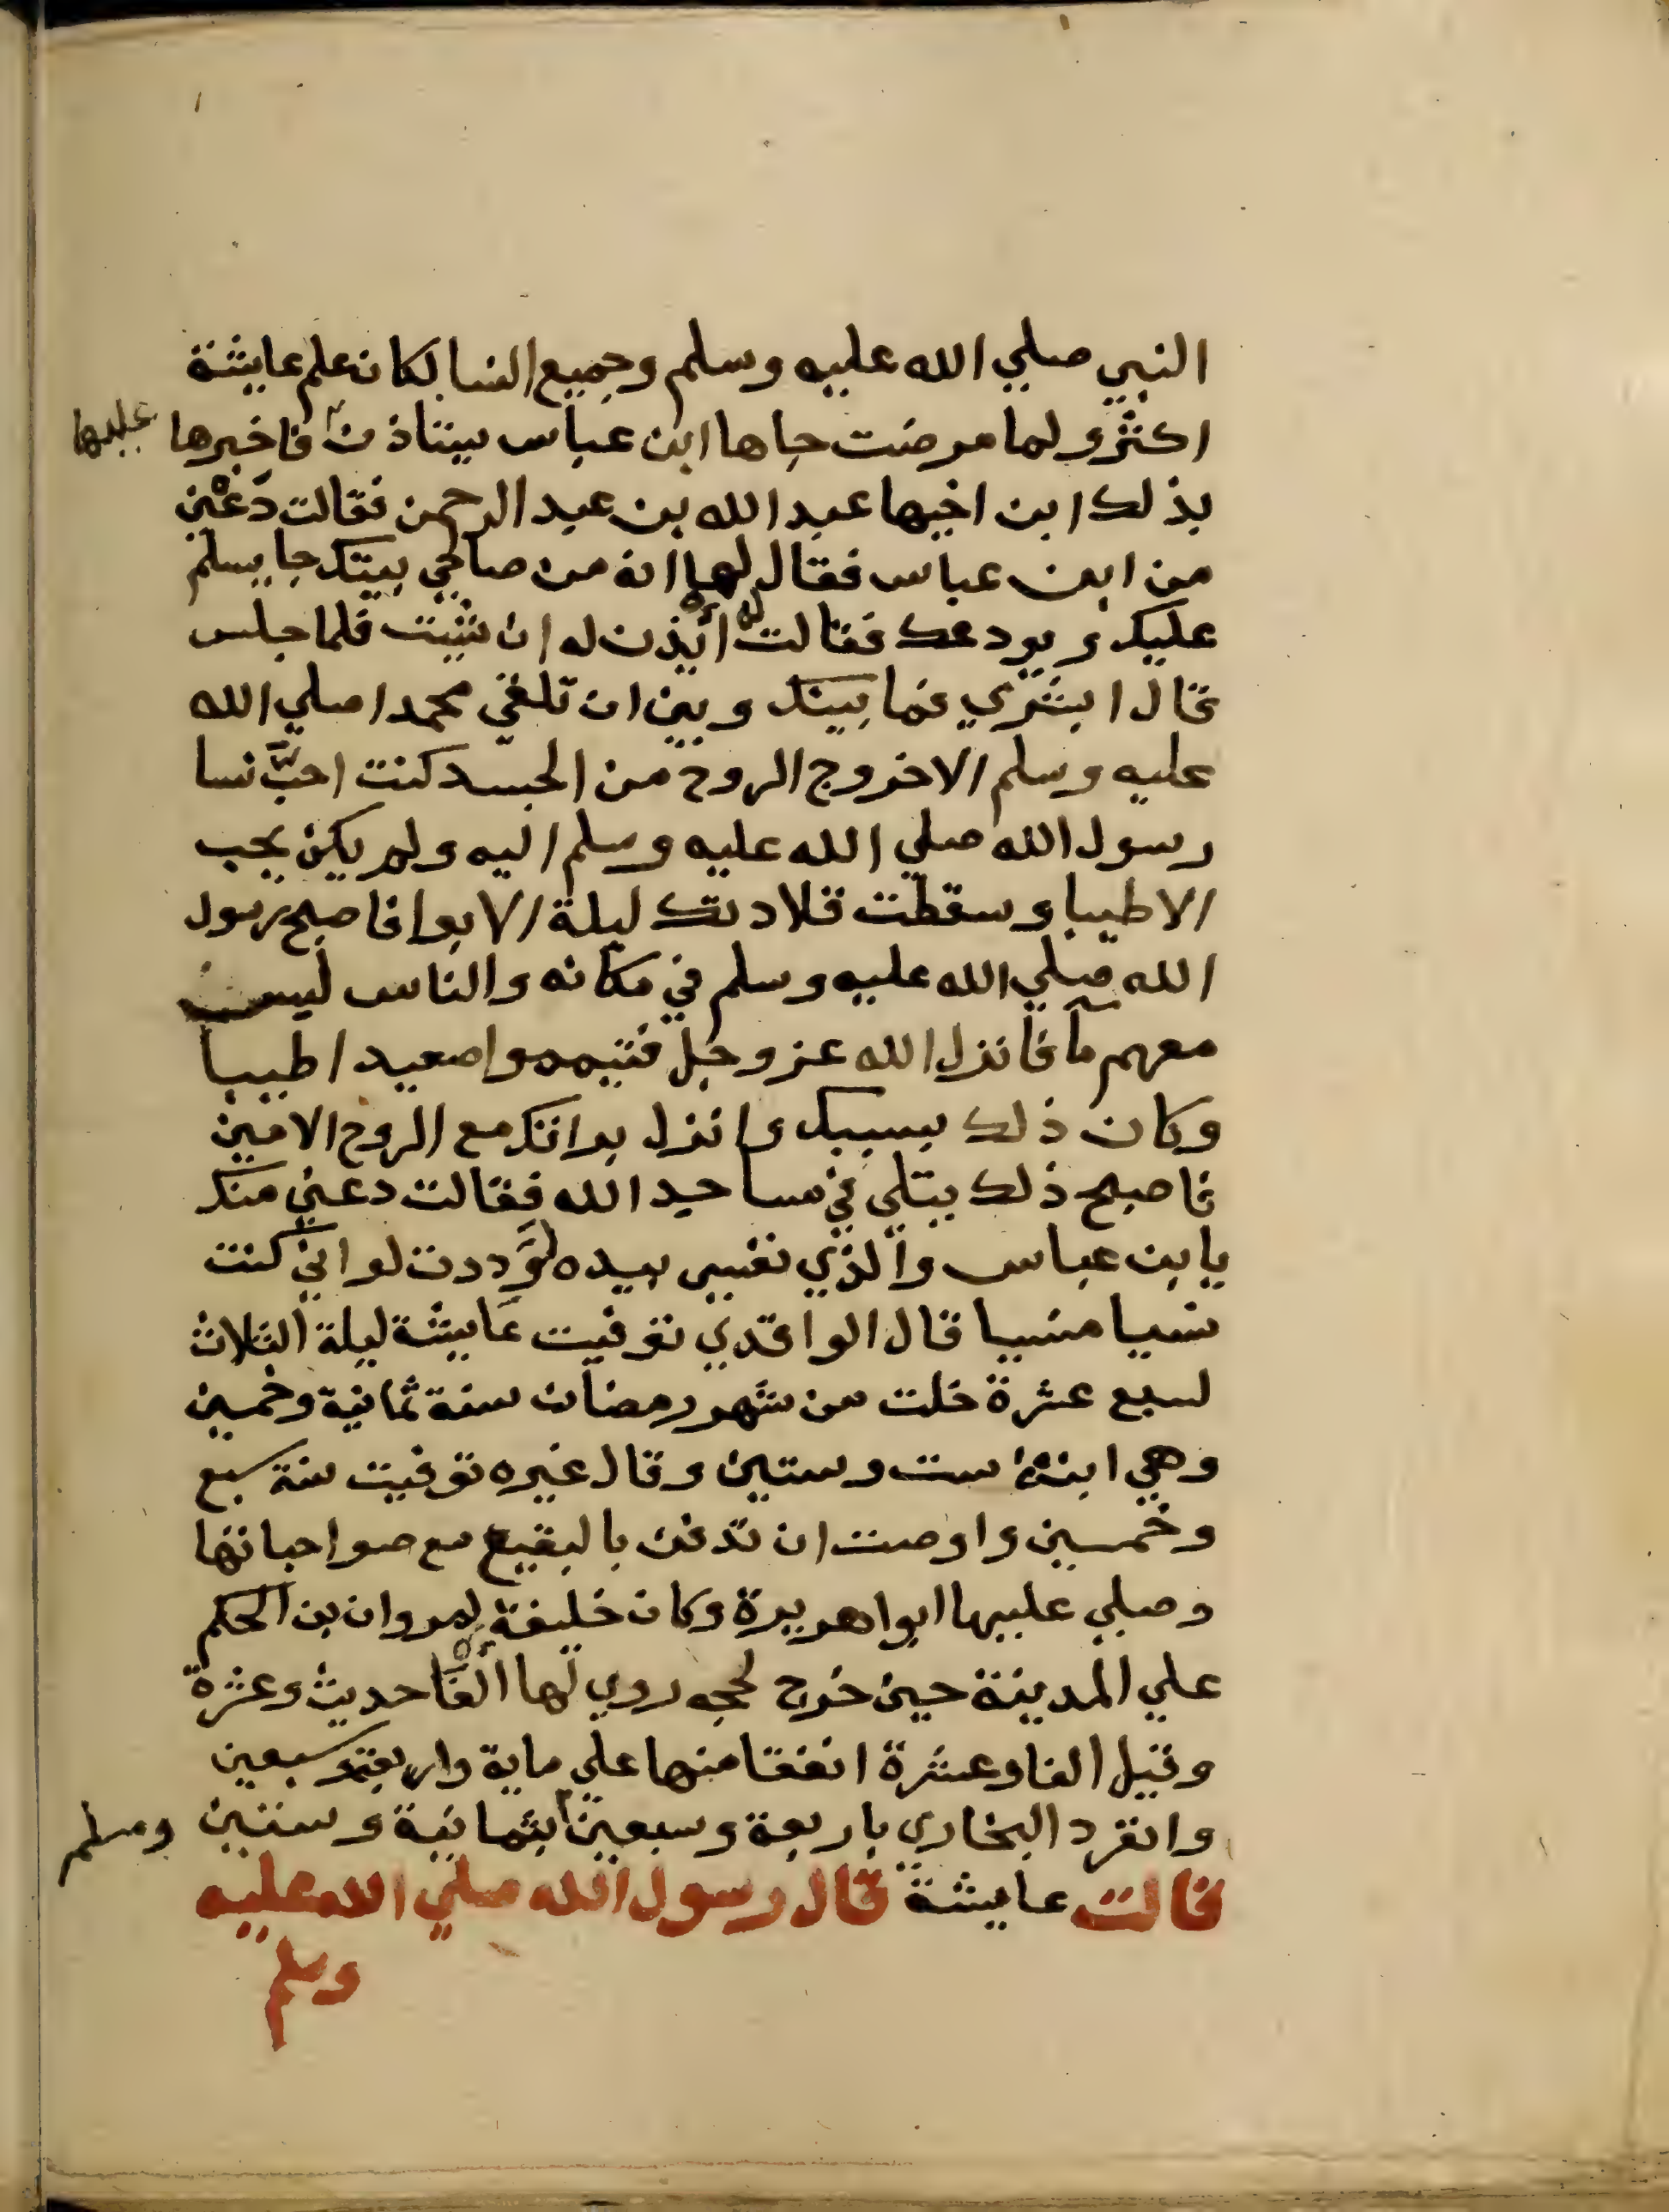 النبي صلي الله عليه وسلم وجميع النسا لكان علم عايشة
اكثر ولما مرضت جاها ابن عباس يستاذن فاخبرها
عليها
بذلك ابن اخيها عبد الله بن عبد الرحمن فقالت دَعْني
من ابن عباس فقال لها انه من صالحي بيتك جا يسلم
عليك ويودعك فقالت له ائذن له ان شيت فلما جلس
قال ابشري فما بينك وبين ان تلقي محمدا صلي الله
عليه وسلم الا خروج الروح من الجسد كنت احبَّ نسا
رسول الله صلي الله عليه وسلم اليه ولم يكن يحب
الا طيبا وسقطت قلادتك ليلة الابوا فاصبح رسول
الله صلي الله عليه وسلم في مكانه والناس ليس
معهم مآ فانزل الله عز وجل فتيمموا صعيدا طيبا
وكان ذلك بسببك وانزل براتك مع الروح الامين
فاصبح ذلك يتلي في مساجد الله فقالت دعني منك
يابن عباس والذي نفسي بيده لوَددت لو اني كنت
نسيا منسيا قال الواقدي توفيت عايشة ليلة الثلاث
لسبع عشرة خلت من شهر رمضان سنة ثمانية وخمسين
وهي ابنة ست وستين وقال غيره توفيت سنة سبع
وخمسين واوصت ان تدفن بالبقيع مع صواحباتها
وصلي عليها ابوا هريرة وكان خليفة لمروان بن الحكم
علي المدينة حين خرج لحجه روي لها الفَا حديث وعشرة
وقيل الفا وعشرة اتفقا منها علي ماية واربعة وسبعين
وانفرد البخاري باربعة وسبعين بثمانية وستين
ومسلم
قالت عايشة قال رسول الله صلي الله عليه
وسلم